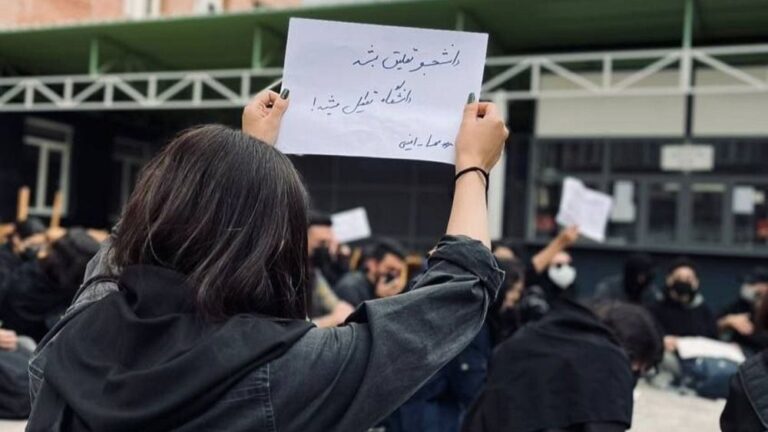 دانشجو تعلیق بشه
دانشگاه تعطیل میشه!
مهسا-امینی